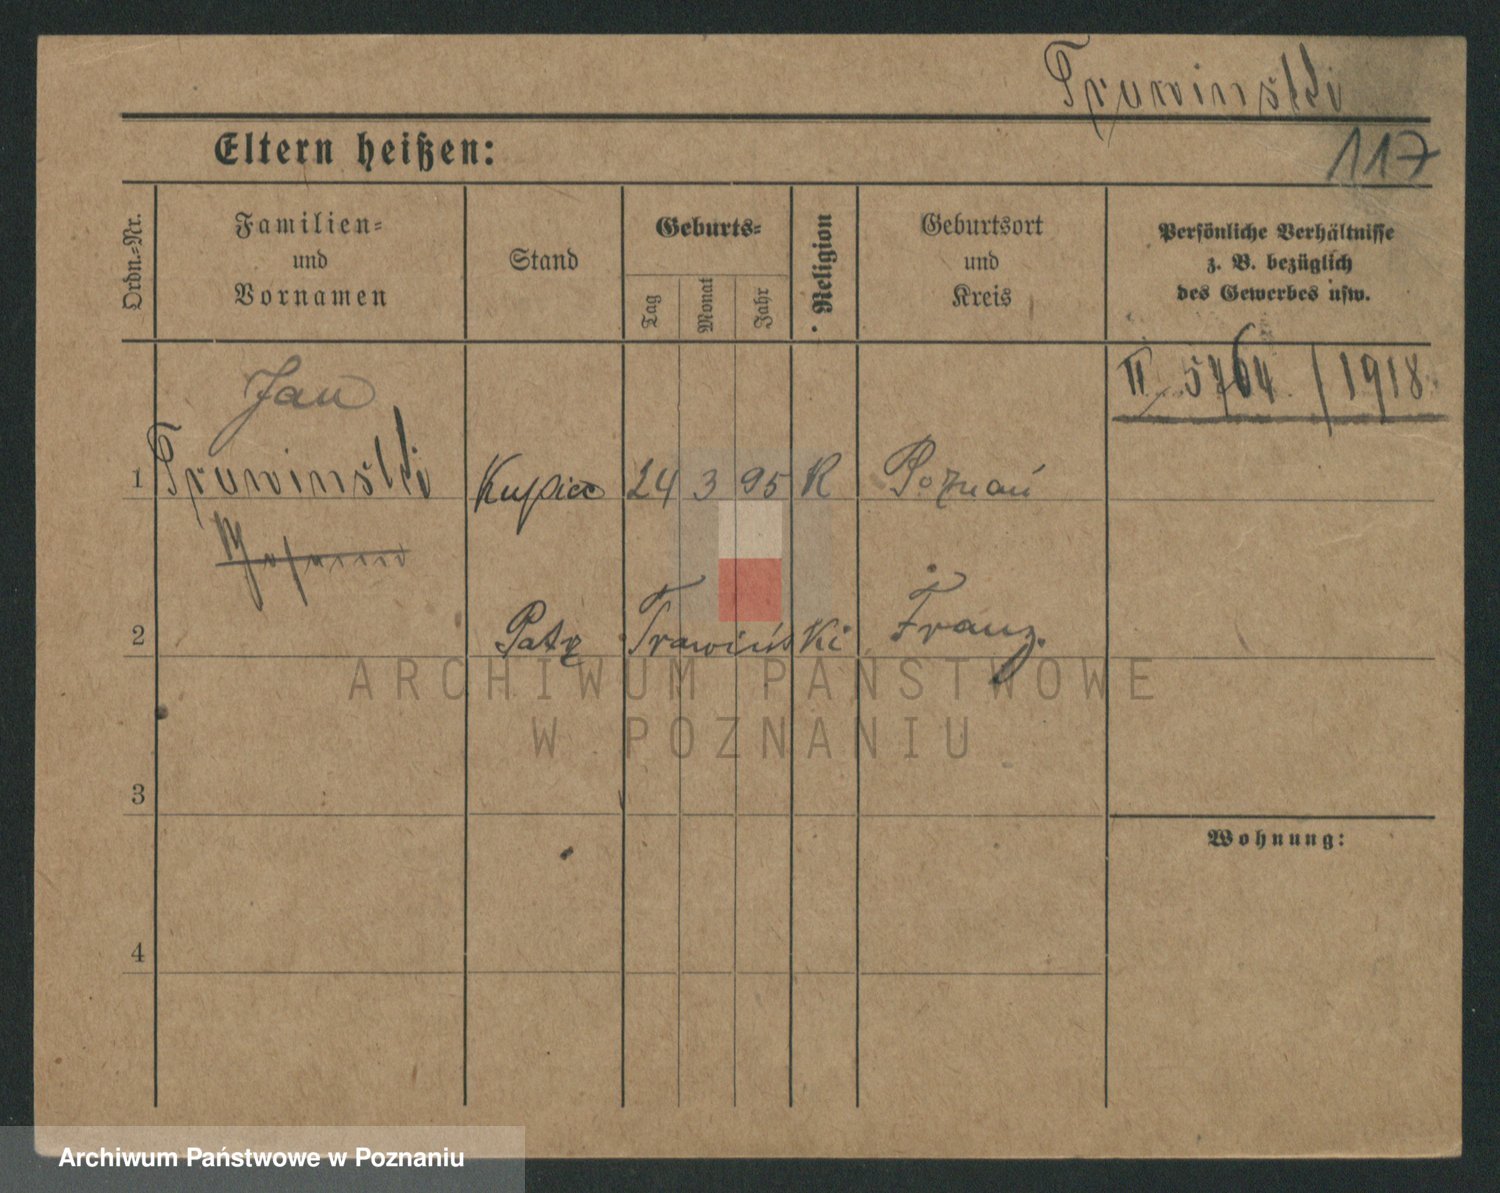 Trawinski
117
Eltern heißen:
Ordn.-Nr.
Familien-
und
Vornamen
Stand
Geburts-
Tag
Monat
Jahr
Religion
Geburtsort
und
Kreis
Persönliche Verhältnisse
z. B. bezüglich
des Gewerbes usw.
II 5764 / 1918
Jan
1 Trawinski Kupiec 24 3 95 R Poznań
2 Patz Trawiński Franz.
3
4
Wohnung:
ARCHIWUM PAŃSTWOWE
W POZNANIU
Archiwum Państwowe w Poznaniu